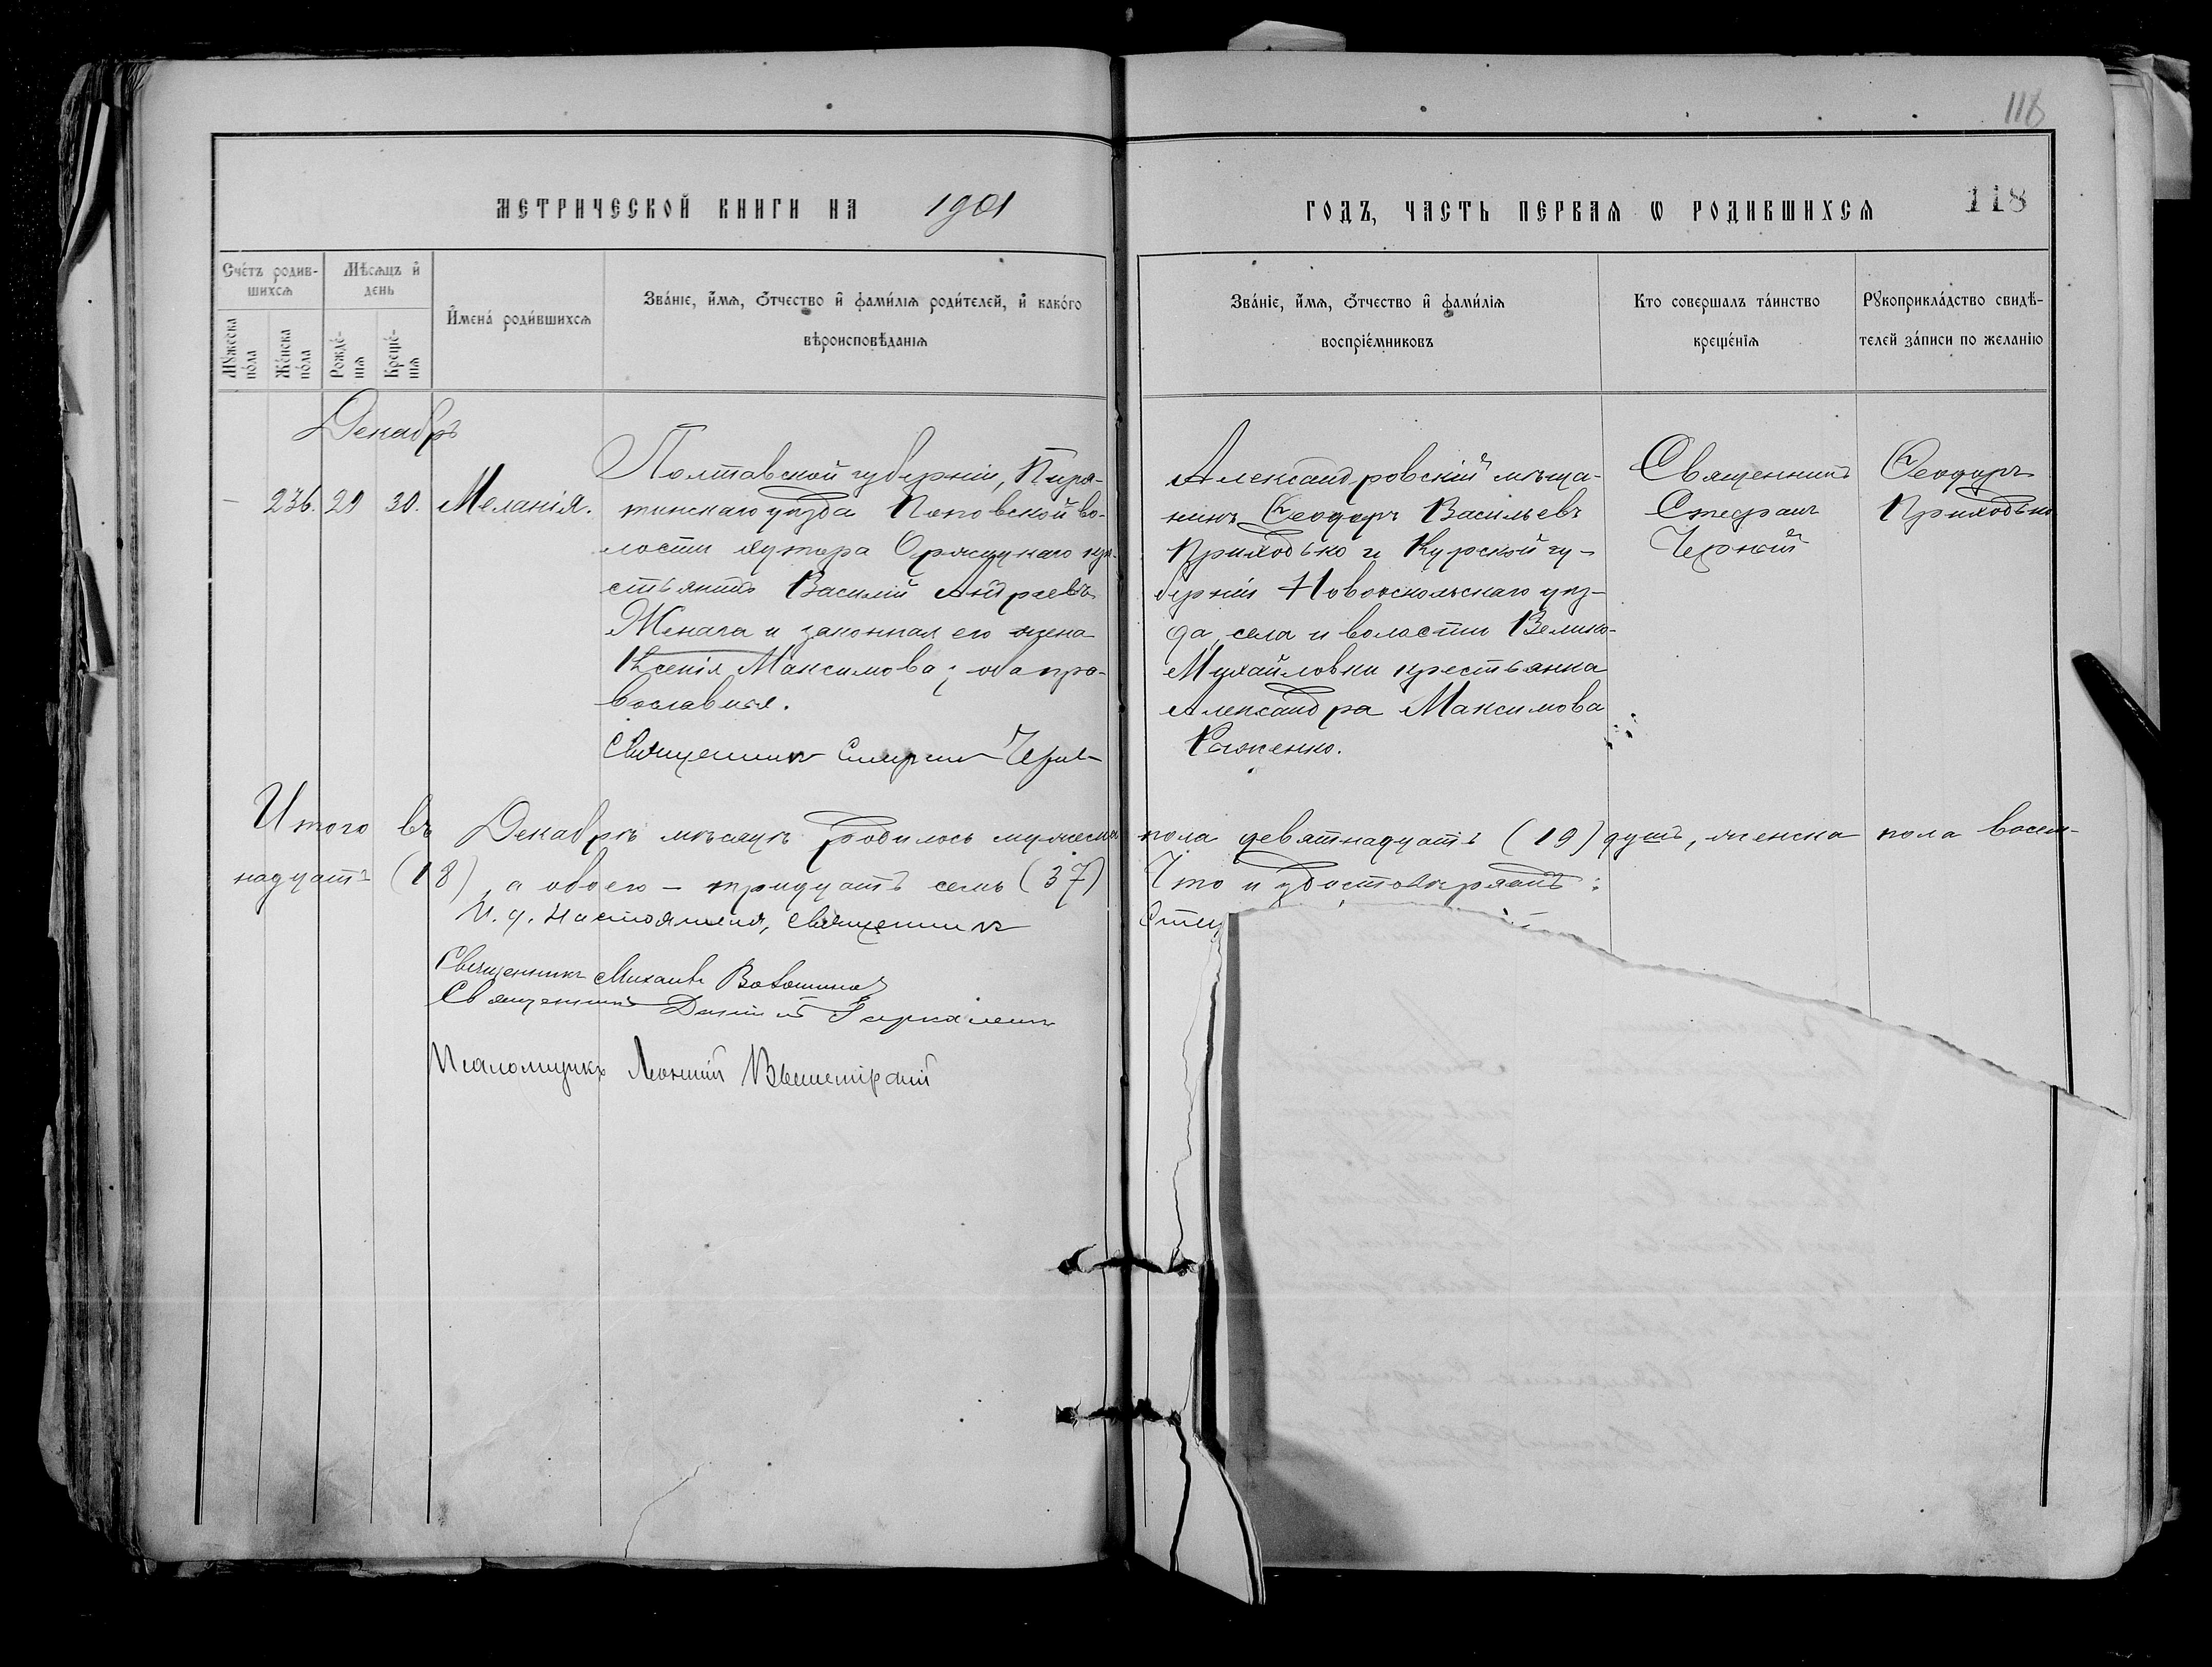 118
МЕТРИЧЕСКОЙ КНИГИ НА 1901
ГОДЪ, ЧАСТЬ ПЕРВАЯ Ѡ РОДИВШИХСЯ 118
Счётъ родив-
шихся
Мѣсяцъ и
день
Мꙋжеска
пола
Женска
пола
Рожде-
нія
Креще-
нія
Имена родившихся
Званіе, имя, отчество и фамилія родителей, и какого
вѣроисповѣданія
Званіе, имя, отчество и фамилія
воспріемниковъ
Кто совершалъ таинство
крещенія
Рꙋкоприкладство свидѣ-
телей записи по желанію
Декабрь
– 236. 29 30. Меланія.
Полтавской губерніи, Пиря-
тинскаго уѣзда Поповской во-
лости хутора Оржицкаго кре-
стьянинъ Василій Андреевъ
Женага и законная его жена
Ксенія Максимова; оба пра-
вославныя.
Священникъ Стефанъ Черный
Александровскій мѣща-
нинъ Ѳеодоръ Васильевъ
Приходько и Курской гу-
берніи Новооскольскаго уѣз-
да, села и волости Велико-
Михайловки крестьянка
Александра Максимова
Священникъ
Стефанъ
Черный
Ѳеодоръ
Приходько
Итого въ Декабрѣ мѣсяцѣ родилось мужеска пола девятнадцать (19) душъ, женска пола восем-
надцать (18), а обоего – тридцать семь (37) Что и удостовѣряемъ:
И. д. Настоятеля, Священникъ
Священникъ Михаилъ
Священникъ
Псаломщикъ